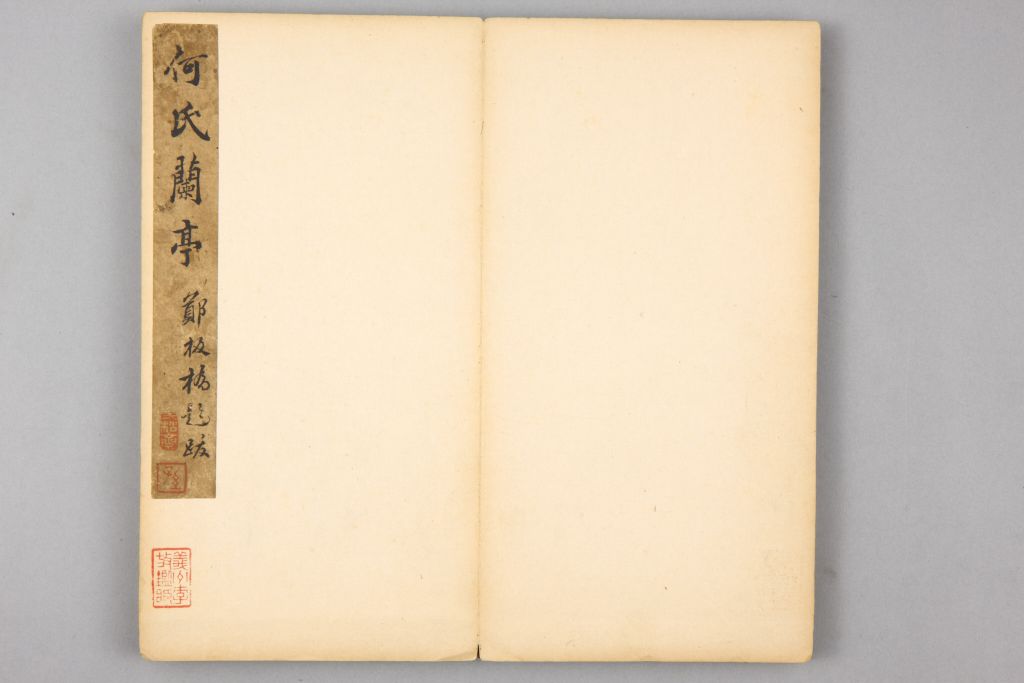 何氏蘭亭
鄭板橋題跋